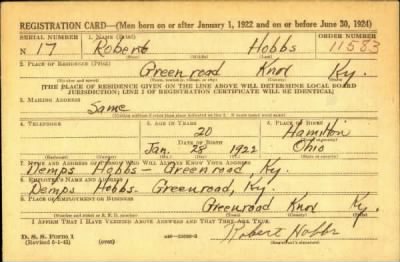 REGISTRATION CARD—(Men born on or after January 1, 1922 and on or before June 30, 1924)
SERIAL NUMBER 1. NAME (Print) ORDER NUMBER
N 17 Robert Hobbs 11583
(First) (Middle) (Last)
2. PLACE OF RESIDENCE (Print)
Greenroad Knox Ky.
(Number and street) (Town, township, village, or city) (County) (State)
[THE PLACE OF RESIDENCE GIVEN ON THE LINE ABOVE WILL DETERMINE LOCAL BOARD
JURISDICTION; LINE 2 OF REGISTRATION CERTIFICATE WILL BE IDENTICAL]
3. MAILING ADDRESS
Same
4. TELEPHONE 5. AGE IN YEARS 6. PLACE OF BIRTH
20 Hamilton
DATE OF BIRTH
Jan. 28 1922 Ohio
7. NAME AND ADDRESS OF PERSON WHO WILL ALWAYS KNOW YOUR ADDRESS
Demps Hobbs — Greenroad, Ky.
8. EMPLOYER'S NAME AND ADDRESS
Demps Hobbs. Greenroad, Ky.
9. PLACE OF EMPLOYMENT OR BUSINESS
Greenroad Knox Ky.
(Number and street or R. F. D. number) (Town) (County) (State)
I AFFIRM THAT I HAVE VERIFIED ABOVE ANSWERS AND THAT THEY ARE TRUE.
D. S. S. Form 1
(Revised 6-1-42) (over) Robert Hobbs
(Registrant's signature)